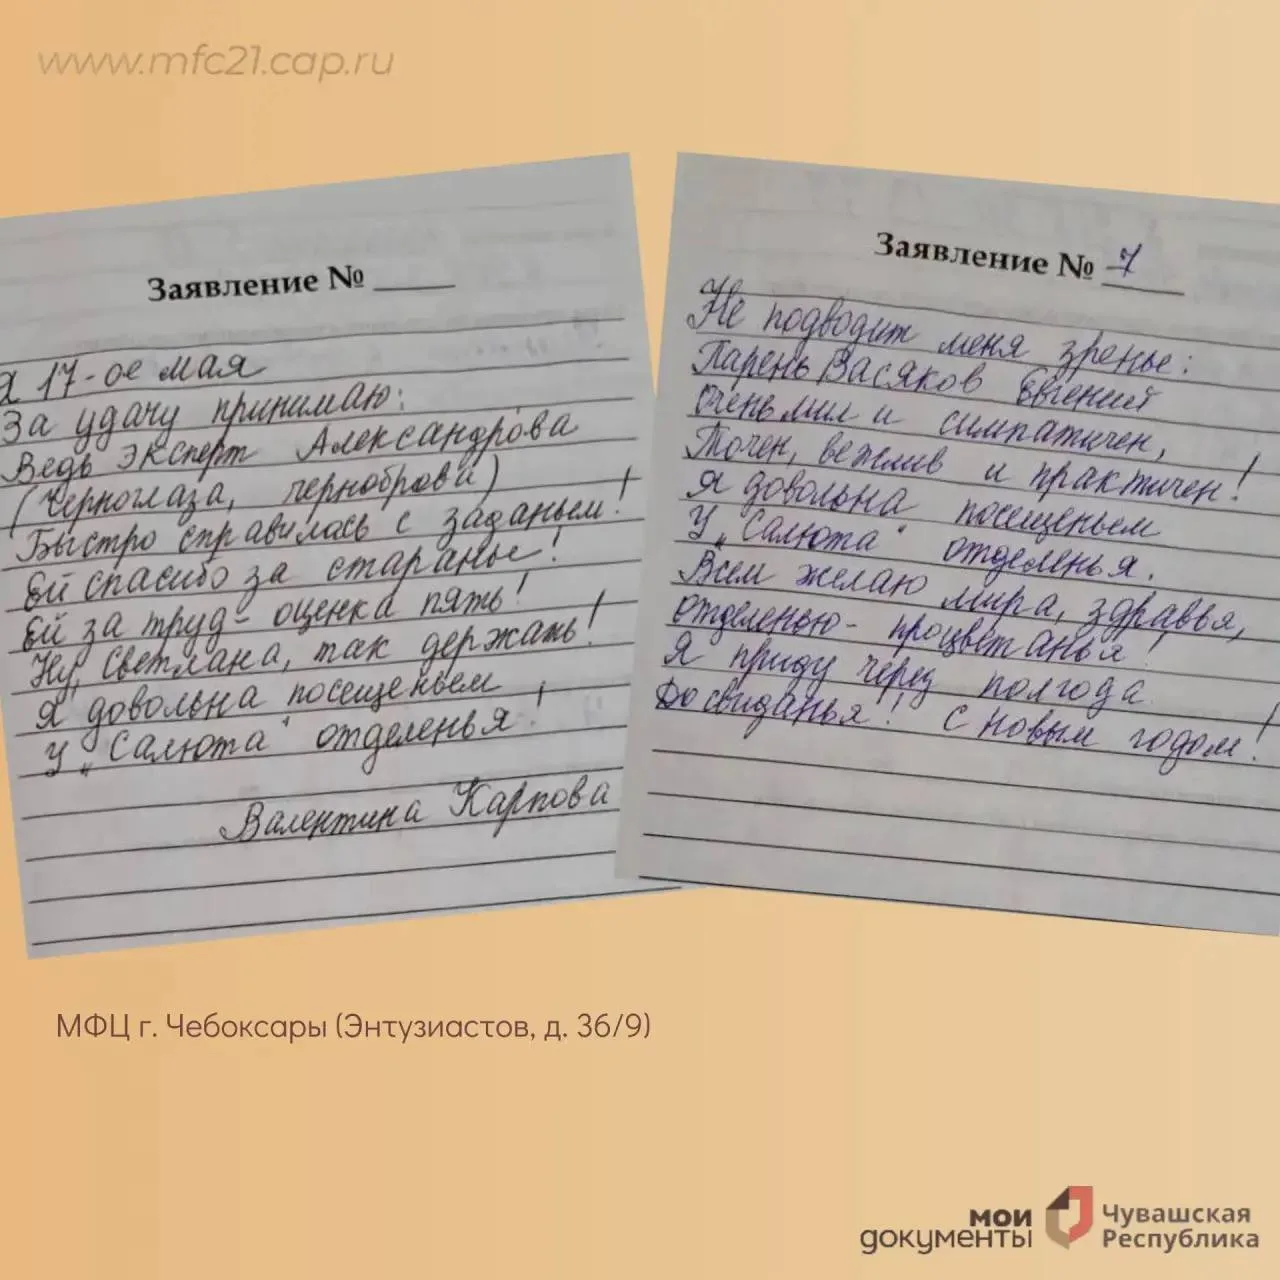 www.mfc21.cap.ru
Заявление №
Я 17-ое мая
За удачу принимаю:
Ведь эксперт Александрова
(Черноглаза, черноброва)
Быстро справилась с заданьем!
Ей спасибо за старанье!
Ей за труд - оценка пять!
Ну, Светлана, так держать!
Я довольна посещеньем
У „Салюта" отделенья!
Валентина Карпова
Заявление № 7
Не подводит меня зренье:
Парень Васяков Евгений
Очень мил и симпатичен,
Точен, вежлив и практичен!
Я довольна посещеньем
У „Салюта" отделенья.
Всем желаю мира, здравья,
отделенью - процветанья!
Я приду через полгода.
До свиданья! С новым годом!
МФЦ г. Чебоксары (Энтузиастов, д. 36/9)
мои документы
Чувашская Республика